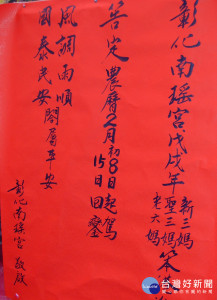 彰化南瑤宮戊戌年
新三媽
聖三媽
老大媽
笨
筶定農曆2月初8日起駕
15日回鑾
風調雨順
國泰民安 閤屬平安
彰化南瑤宮 敬啟